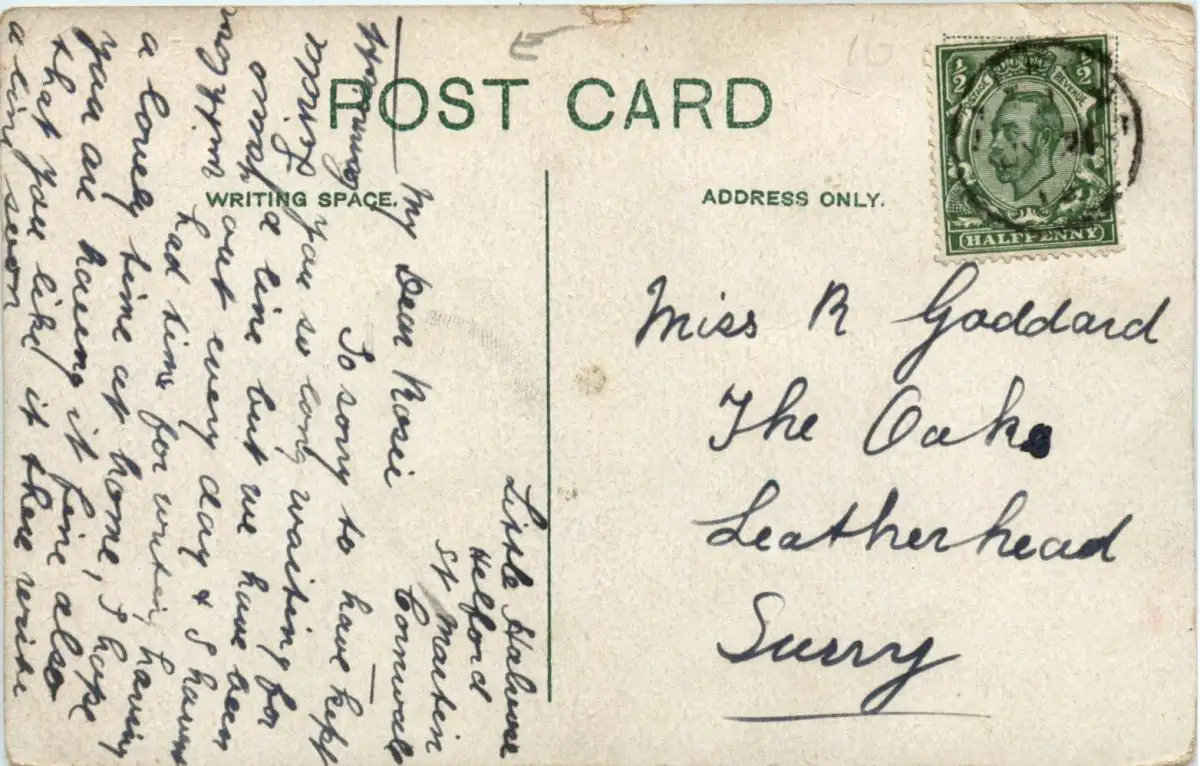 POST CARD
WRITING SPACE.
ADDRESS ONLY.
½ ½
POSTAGE REVENUE
HALFPENNY
Miss R Goddard
The Oaks
Leatherhead
Surry
Little
Helford
St Martin
Cornwall
My Dear Rosie
So sorry to have kept
you so long waiting for
a line but we have been
out every day & I havent
had time for writing, having
a lovely time at home, I hope
you are having it fine also
that you like it there write
a line soon